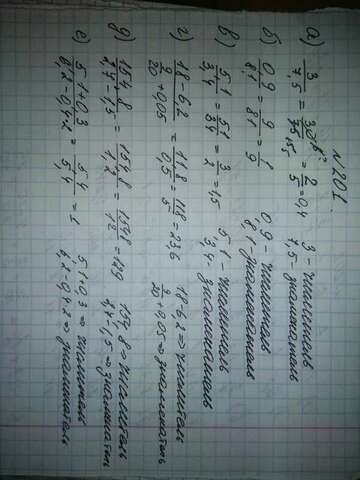 №201.
а) 3/7,5 = 30/75 = 2/5 = 0,4 3 - числитель
7,5 - знаменатель
б) 0,9/8,1 = 9/81 = 1/9 0,9 - числитель
8,1 - знаменатель
в) 5,1/3,4 = 51/34 = 3/2 = 1,5 5,1 - числитель
3,4 - знаменатель
г) 18-6,2 / 9/20+0,05 = 11,8/0,5 = 118/5 = 23,6 18-6,2 => числитель
9/20+0,05 => знаменатель
д) 154,8/2,7-1,5 = 154,8/1,2 = 1548/12 = 129 154,8 => числитель
2,7-1,5 => знаменатель
е) 5,1+0,3 / 6,2-0,4·2 = 5,4/5,4 = 1 5,1+0,3 => числитель
6,2-0,4·2 => знаменатель